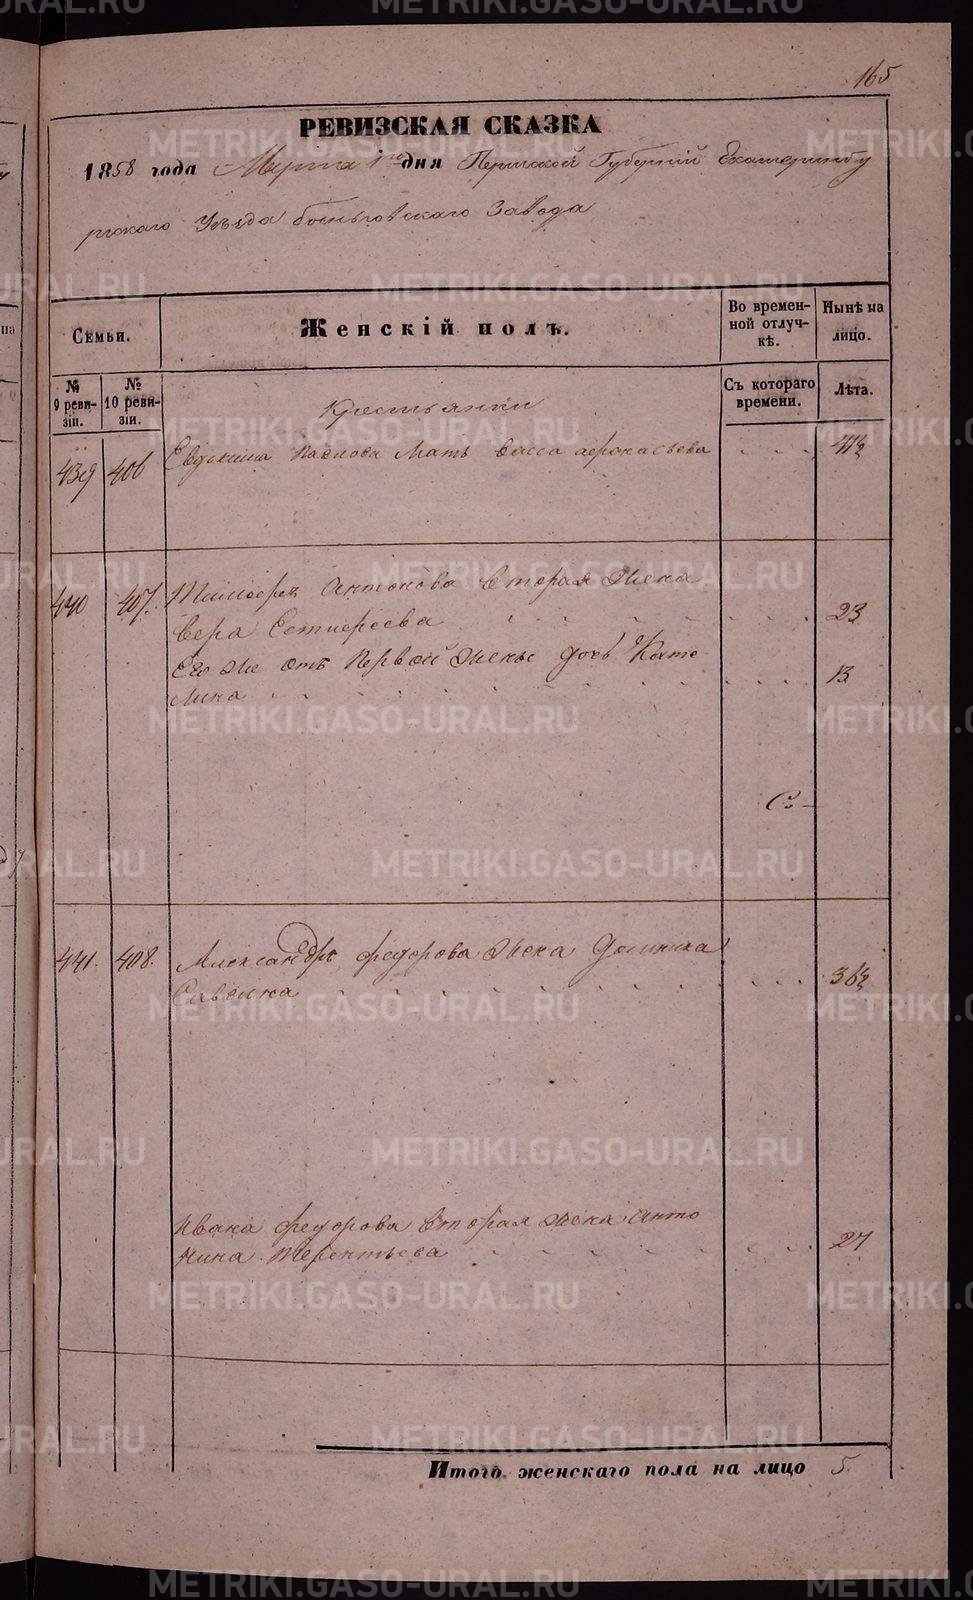 165
РЕВИЗСКАЯ СКАЗКА
1858 года Марта 1го дня Пермской Губерніи Екатеринбу
ргскаго Уѣзда Завода
Семьи.
Женскій полъ.
Во времен-
ной отлуч-
кѣ.
Нынѣ на
лицо.
№
9 реви-
зіи.
№
10 реви-
зіи.
Съ котораго
времени.
Лѣта.
Крестьянки
439 406 Евдокима Павлова Мать Васса Афонасьева 41½
440 407. Антонова Вторая Жена
Вера 23
Его же отъ Первой Жены дочь Кате-
лина 13
441. 408. Александра Федорова Жена
36½
Ивана Федорова Вторая Жена Анто
нина Терентьева 27
Итого женскаго пола на лицо 5.
METRIKI.GASO-URAL.RU